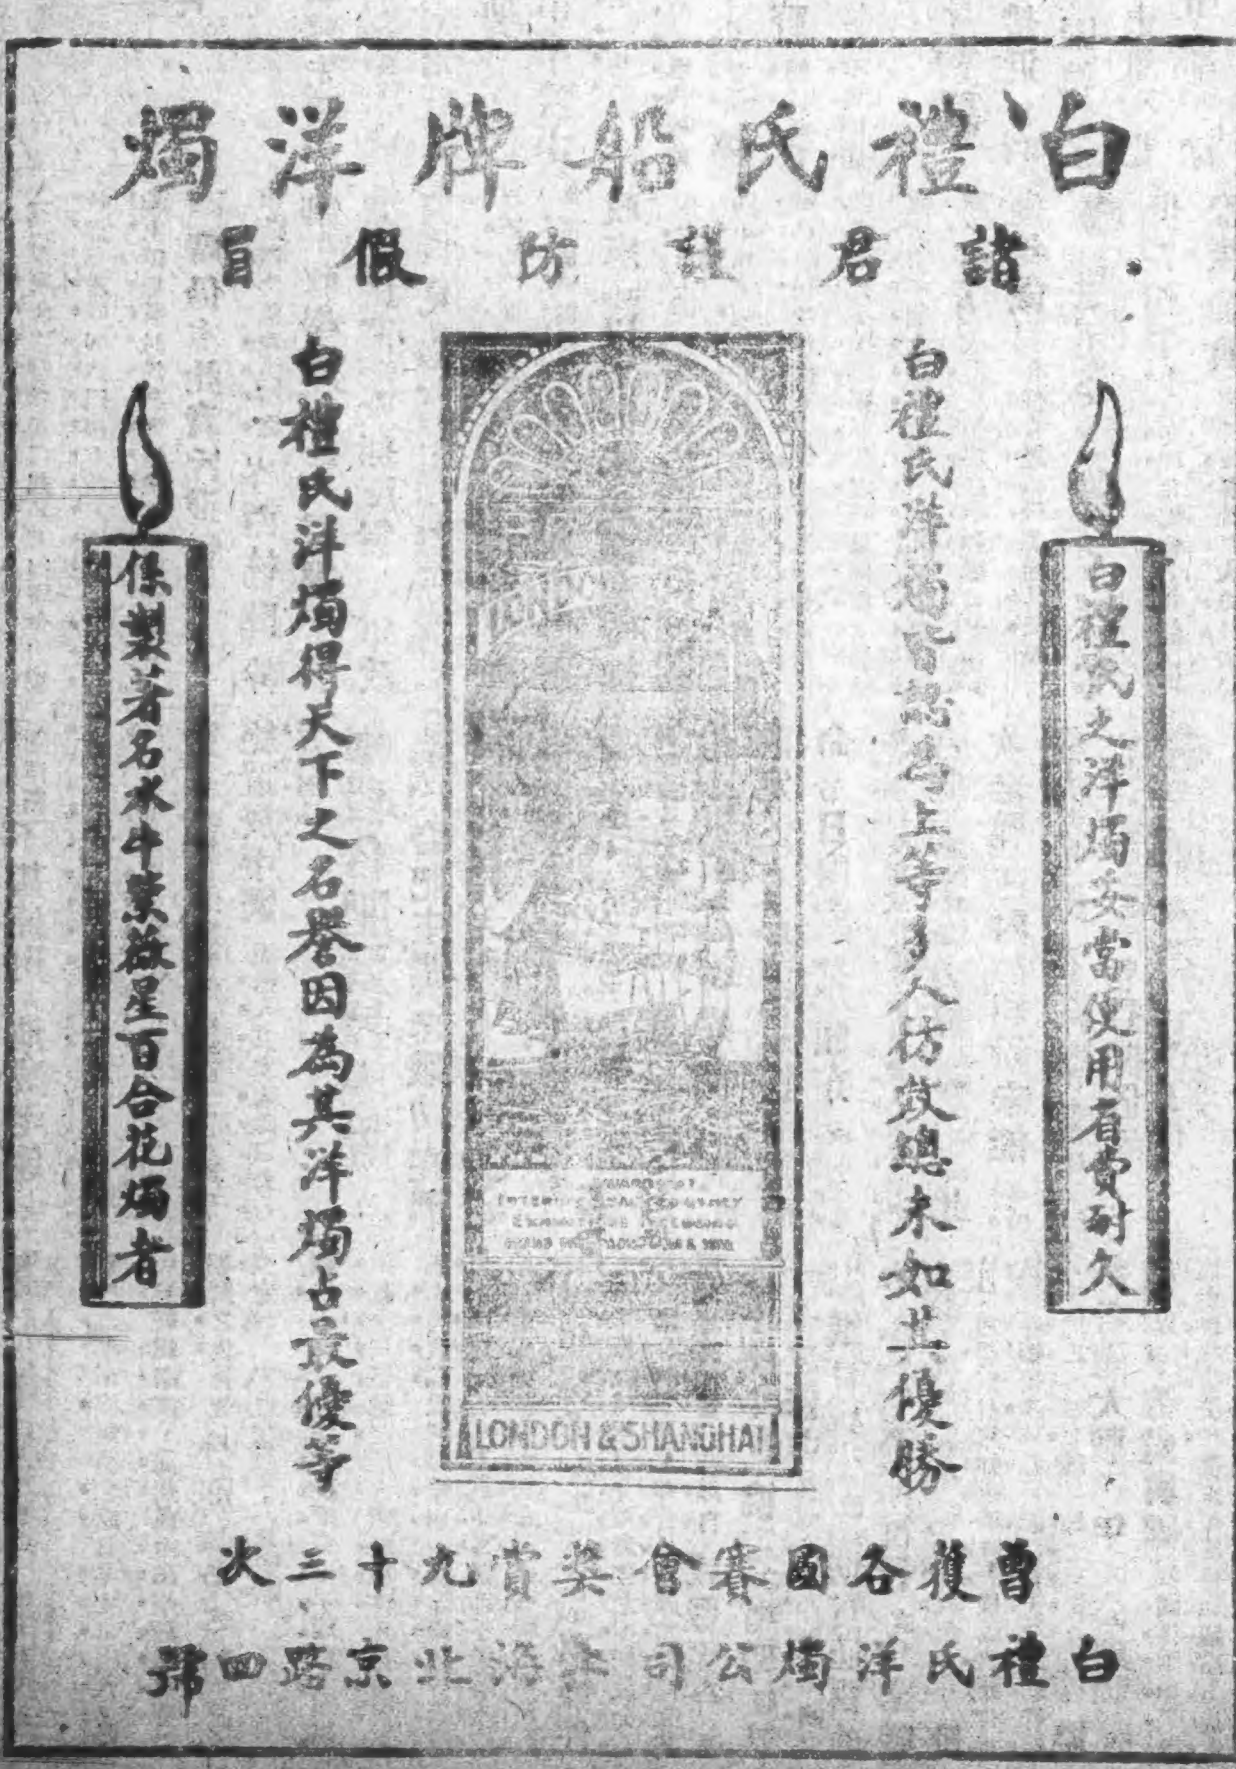 白禮氏船牌洋燭
諸君謹防假冒
白禮氏之洋燭妥當使用省費耐久
白禮氏洋燭皆認為上等多人彷效總未如其優勝
LONDON & SHANGHAI
白禮氏洋燭得天下之名譽因為其洋燭占最優等
係製著名水牛紫薇星百合花燭者
曾獲各國賽會獎賞九十三次
白禮氏洋燭公司 海北京路四號